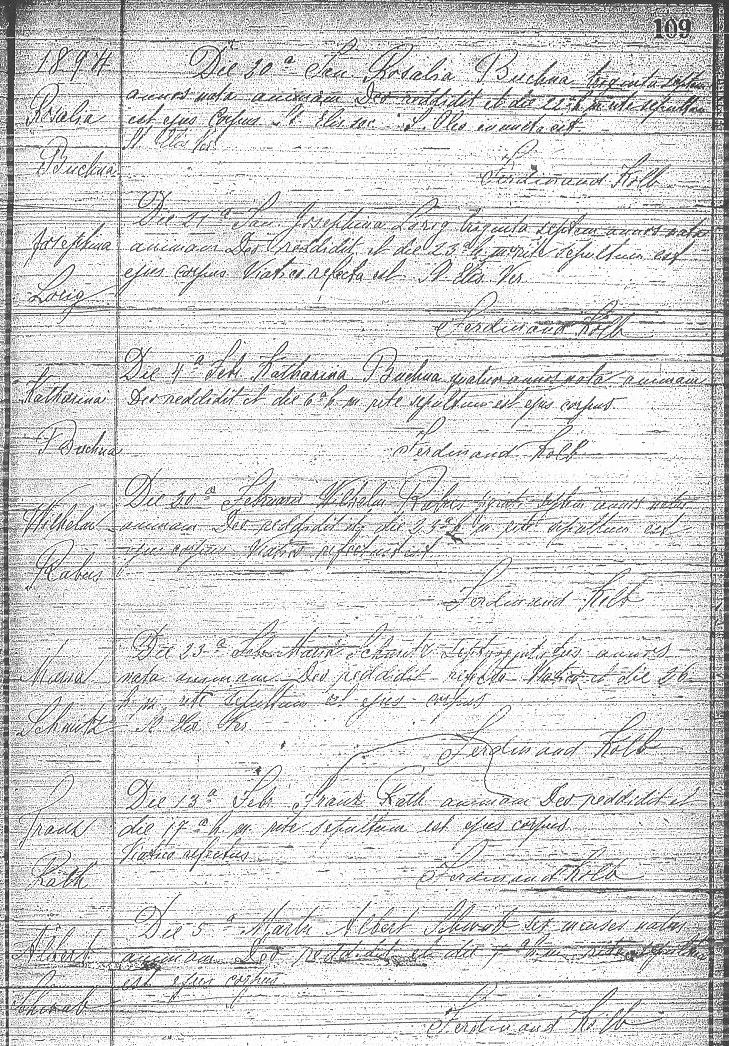 109
1894
Rosalia
Buchna
Die 20ª Jan Rosalia Buchna triginta septem
annos nata animam Deo reddidit et die h m rite sepultum
est ejus corpus S. Oleo inuncta est
Ferdinand Kolb
Josephina
Lorig
Die 21ª Jan Josephina Lorig triginta septem annos nata
animam Deo reddidit et die 23ª h m rite sepultum est
ejus corpus Viatico refecta est
Ferdinand Kolb
Katharina
Buchna
Die 4ª Febr Katharina Buchna quatuor annos nata animam
Deo reddidit et die 6ª h m rite sepultum est ejus corpus
Ferdinand Kolb
Wilhelm
Rabus
Die 20ª Februarii Wilhelm Rabus septem annos natus
animam Deo reddidit et die 23ª h m rite sepultum est
ejus corpus Viatico refectus est
Ferdinand Kolb
Maria
Schmitz
Die 23ª Febr Maria Schmitz annos
nata animam Deo reddidit refecta Viatico et die 26
h m rite sepultum est ejus corpus
Ferdinand Kolb
Franz
Rath
Die 13ª Febr Franz Rath animam Deo reddidit et
die 17ª h m rite sepultum est ejus corpus
Viatico refectus
Ferdinand Kolb
Albert
Schwab
Die 5ª Martii Albert Schwab sex menses natus
animam Deo reddidit et die h m rite sepultum
est ejus corpus
Ferdinand Kolb